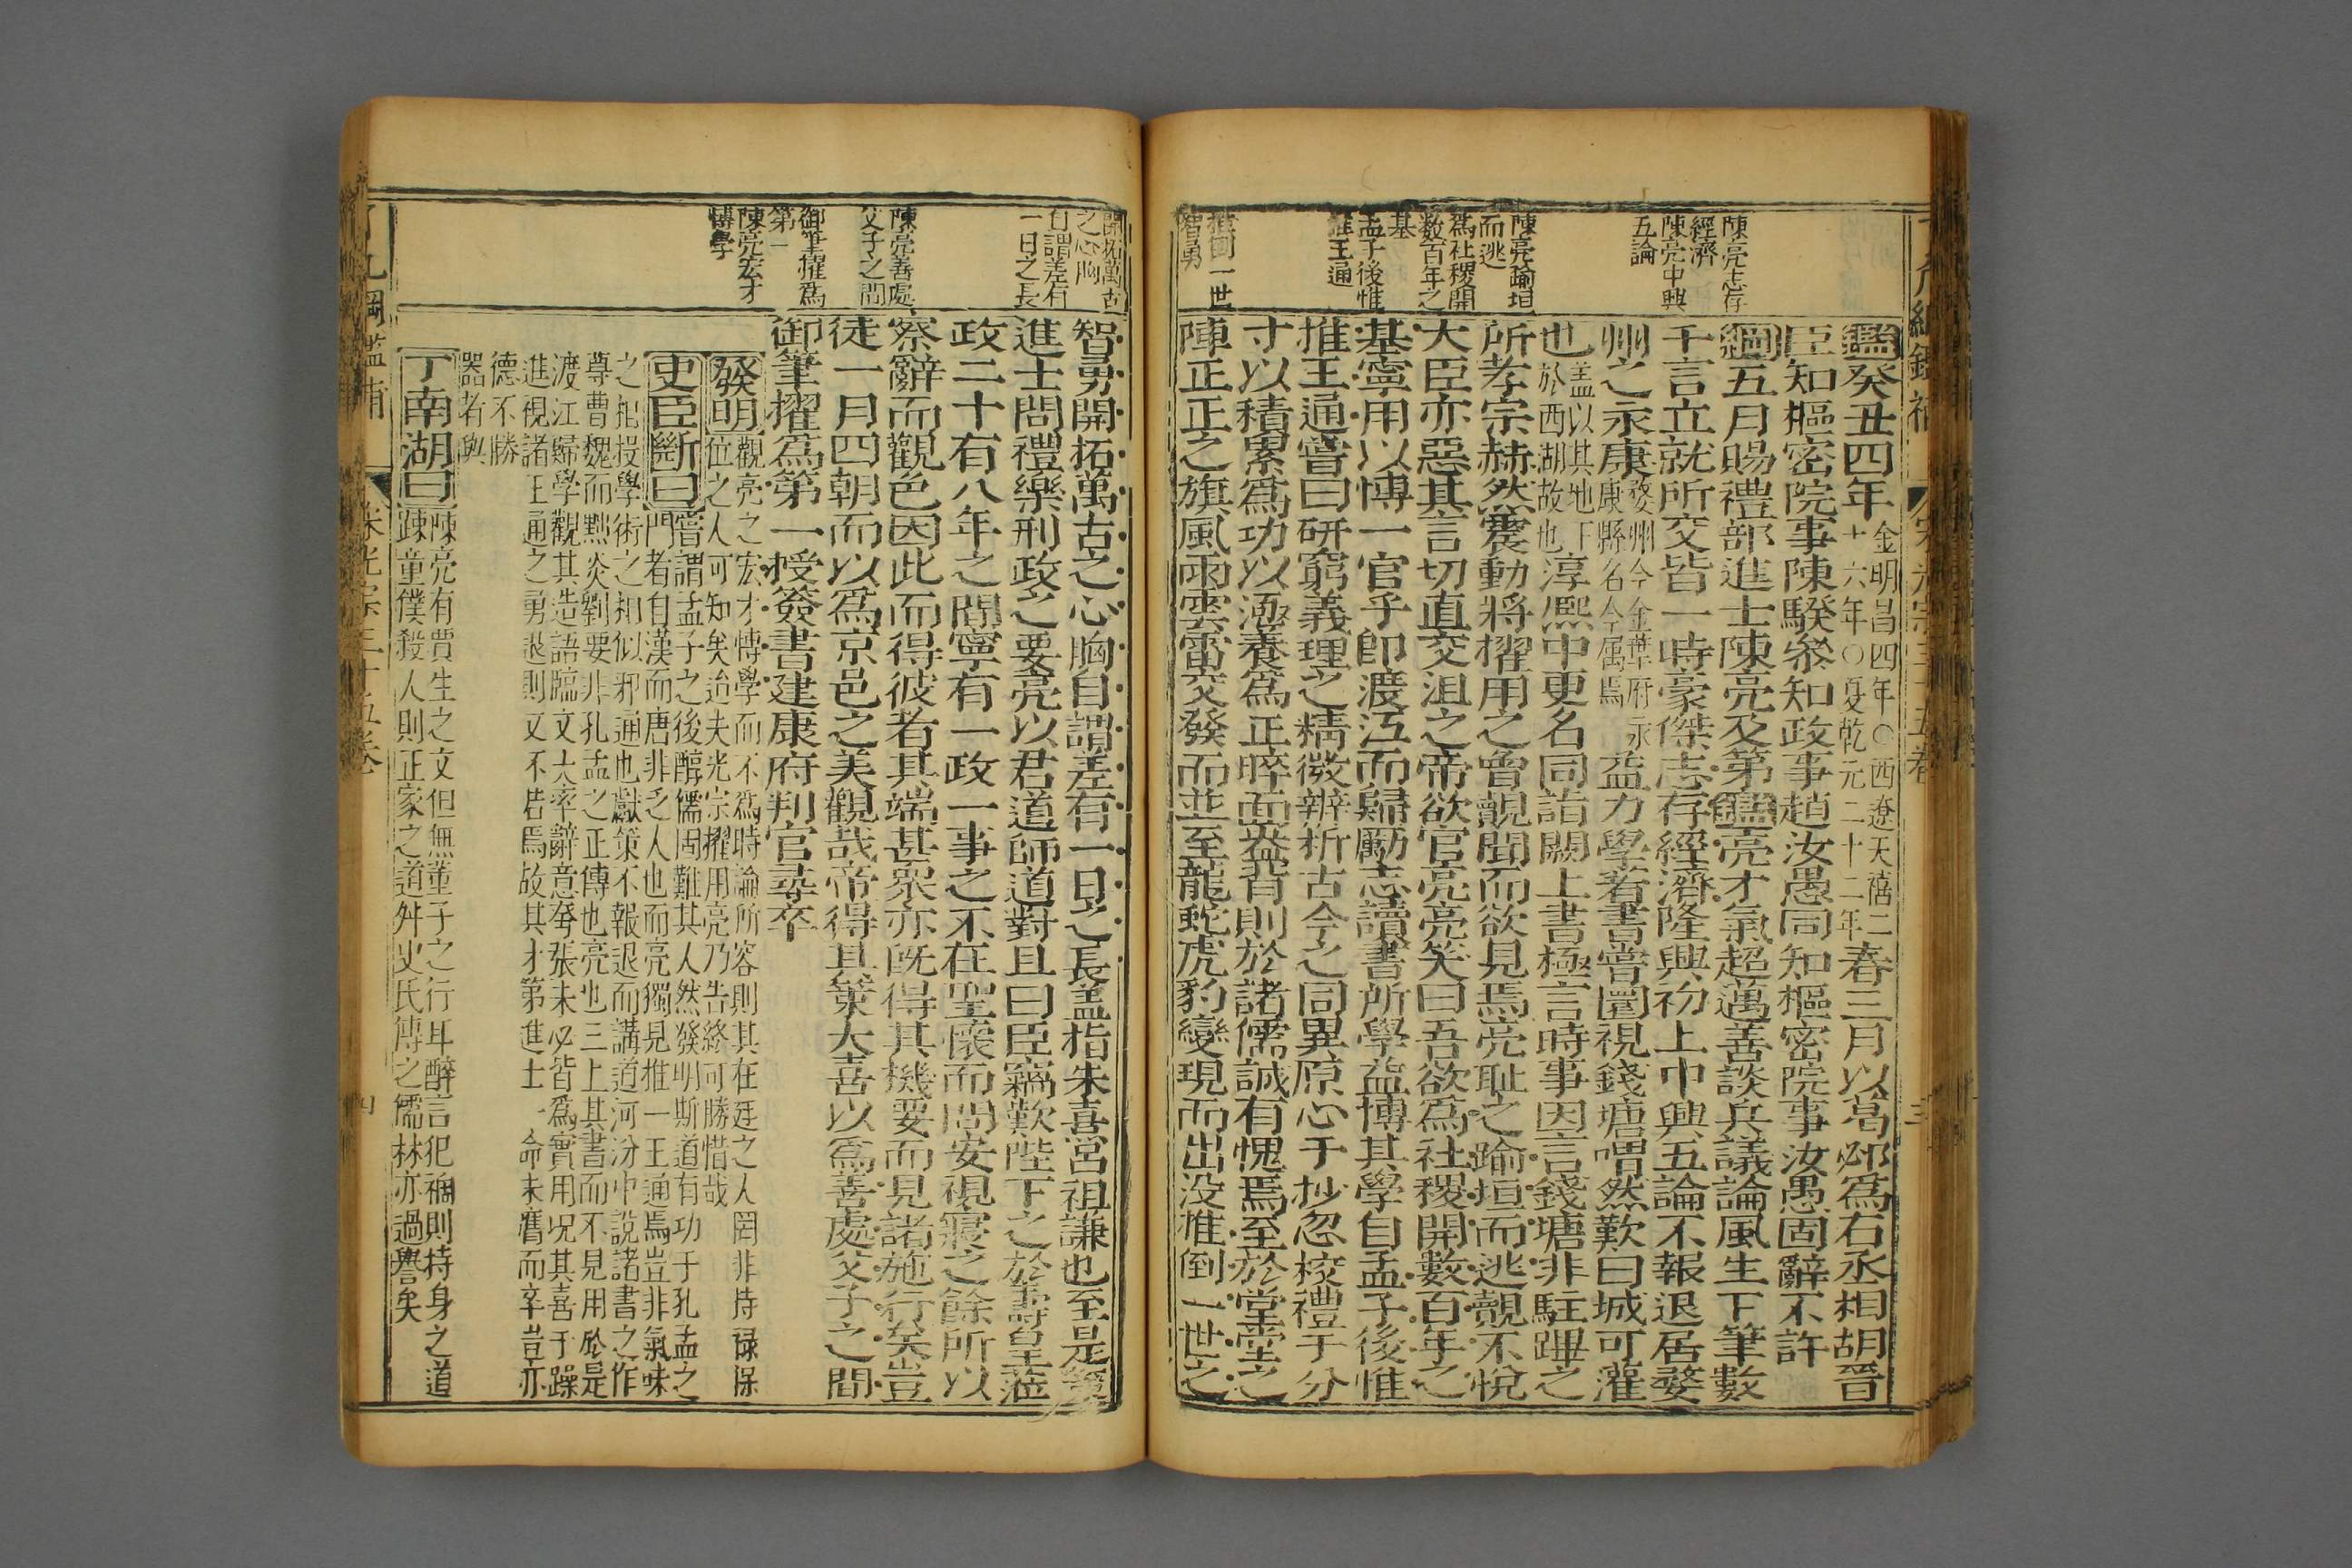 陳亮志存
經濟
陳亮中興
五論
陳亮踰垣
而逃
爲社稷開
数百年之
基
孟子後惟
推王通
推倒一世
智勇
鑑癸丑四年金明昌四年〇西遼天禧二十六年〇夏乾元二十二年春三月以葛邲爲右丞相胡晉
臣知樞密院事陳騤叅知政事趙汝愚同知樞密院事汝愚固辭不許
綱五月賜禮部進士陳亮及第鑑亮才氣超邁善談兵議論風生下筆數
千言立就所交皆一時豪傑志存經濟隆興初上中興五論不報退居婺
州之永康婺州今金華府永康縣名今属焉益力學著書嘗圜視錢塘喟然歎曰城可灌
也盖以其地下於西湖故也淳熙中更名同詣闕上書極言時事因言錢塘非駐蹕之
所孝宗赫然震動將擢用之曾覿聞而欲見焉亮耻之踰垣而逃覿不悅
大臣亦惡其言切直交沮之帝欲官亮亮笑曰吾欲爲社稷開數百年之
基寧用以博一官乎即渡江而歸勵志讀書所學益博其學自孟子後惟
推王通嘗曰研窮義理之精微辨析古今之同異原心于抄忽校禮于分
寸以積累爲功以涵養爲正睟面盎背則於諸儒誠有愧焉至於堂堂之
陣正正之旗風雨雲雷交發而並至龍蛇虎豹變現而出没推倒一世之
開拓萬古
之心胸
自謂差有
一日之長
陳亮善處
父子之間
御筆擢爲
第一
陳亮宏才
博學
智勇開拓萬古之心胸自謂差有一日之長盖指朱喜呂祖謙也至是策
進士問禮樂刑政之要亮以君道師道對且曰臣竊歎陛下之於壽皇蒞
政二十有八年之間寧有一政一事之不在聖懷而問安視寢之餘所以
察辭而觀色因此而得彼者其端甚衆亦旣得其機要而見諸施行矣豈
徒一月四朝而以爲京邑之美觀哉帝得其策大喜以爲善處父子之間
御筆擢爲第一授簽書建康府判官尋卒
發明觀亮之宏才博學而不爲時論所容則其在廷之人罔非持禄保
位之人可知矣迨夫光宗擢用亮乃告終可勝惜哉
史臣斷曰嘗謂孟子之後醇儒固難其人然發明斯道有功于孔孟之
門者自漢而唐非乏人也而亮獨見推一王通焉豈非氣味
之相投學術之相似邪通也獻策不報退而講道河汾中說諸書之作
尊曹魏而黜炎劉要非孔孟之正傳也亮也三上其書而不見用於是
渡江歸學觀其造語臨文大率辭意夸張未必皆爲實用况其喜于躁
進視諸王通之勇退則又不侔焉故其才第進士一命未膺而卒豈亦
德不勝
器者與
丁南湖曰陳亮有賈生之文但無董子之行耳醉言犯禍則持身之道
疎童僕殺人則正家之道舛史氏傳之儒林亦過譽矣